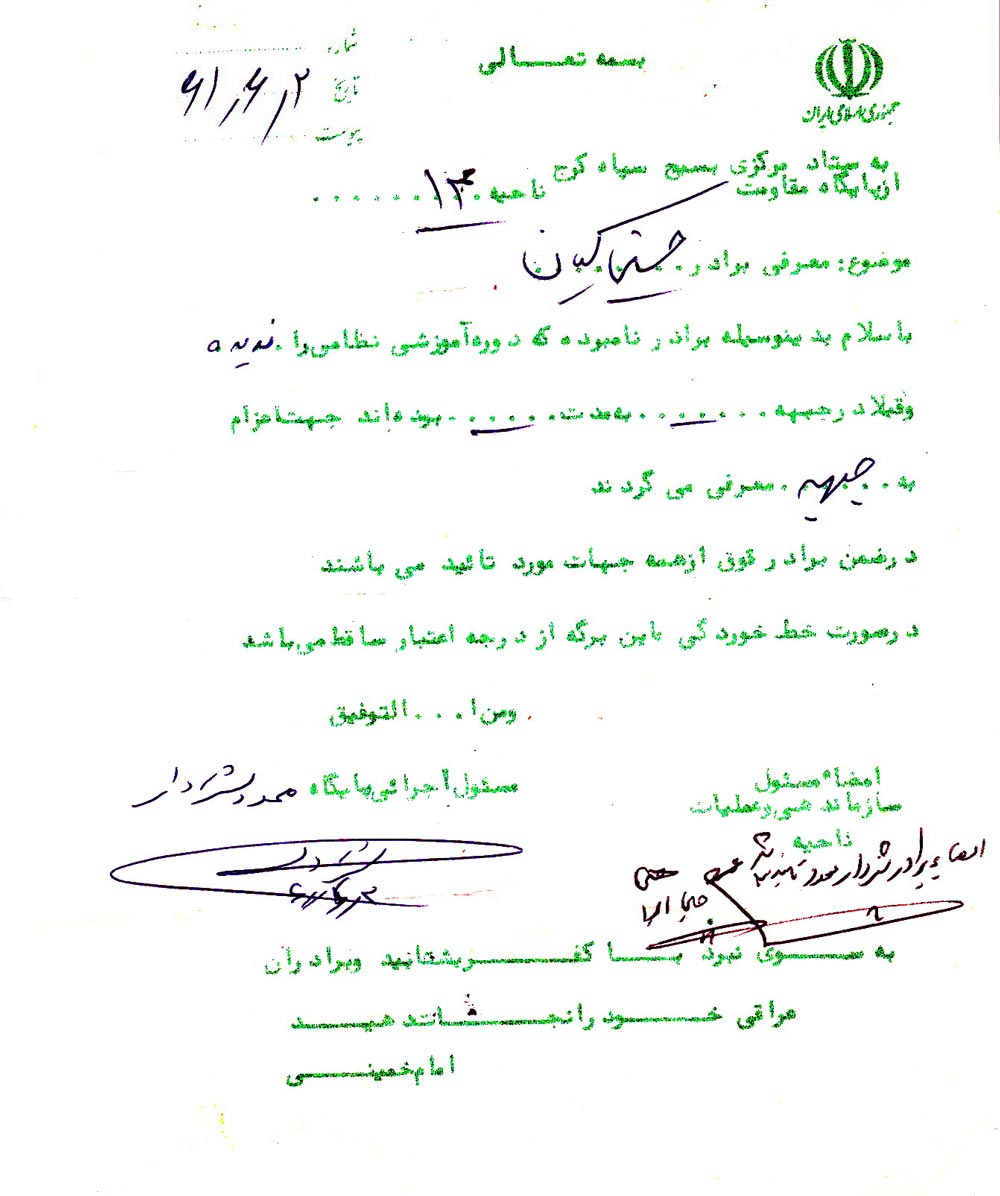 بسمه تعالی
جمهوری اسلامی ایران
شماره
تاریخ ۶۱٫۶٫۲
پیوست
به ستاد مرکزی بسیج سپاه کرج
از پایگاه مقاومت ناحیه ۱۳
موضوع: معرفی برادر
باسلام بدینوسیله برادر نامبوده که دوره آموزشی نظامی را ندیده
وقبلا در جبهه ....... به مدت ...... بوده اند جهت اعزام
به جبهه معرفی می گردند
درضمن برادر فوق از همه جهات مورد تائید می باشند
درصورت خط خوردگی باین برگه از درجه اعتبار ساقط می باشد
ومن ا... التوفیق
امضاء مسئول
سازماندهی وعملیات
ناحیه
مسئول اجرائی پایگاه محمود
امضاء برادر محمود
به سوی نبرد با کفر بشتابید وبرادران
عراقی خود را نجات دهید
امام خمینی